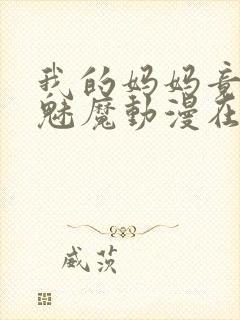 我的妈妈竟
魅魔動漫在
威茨